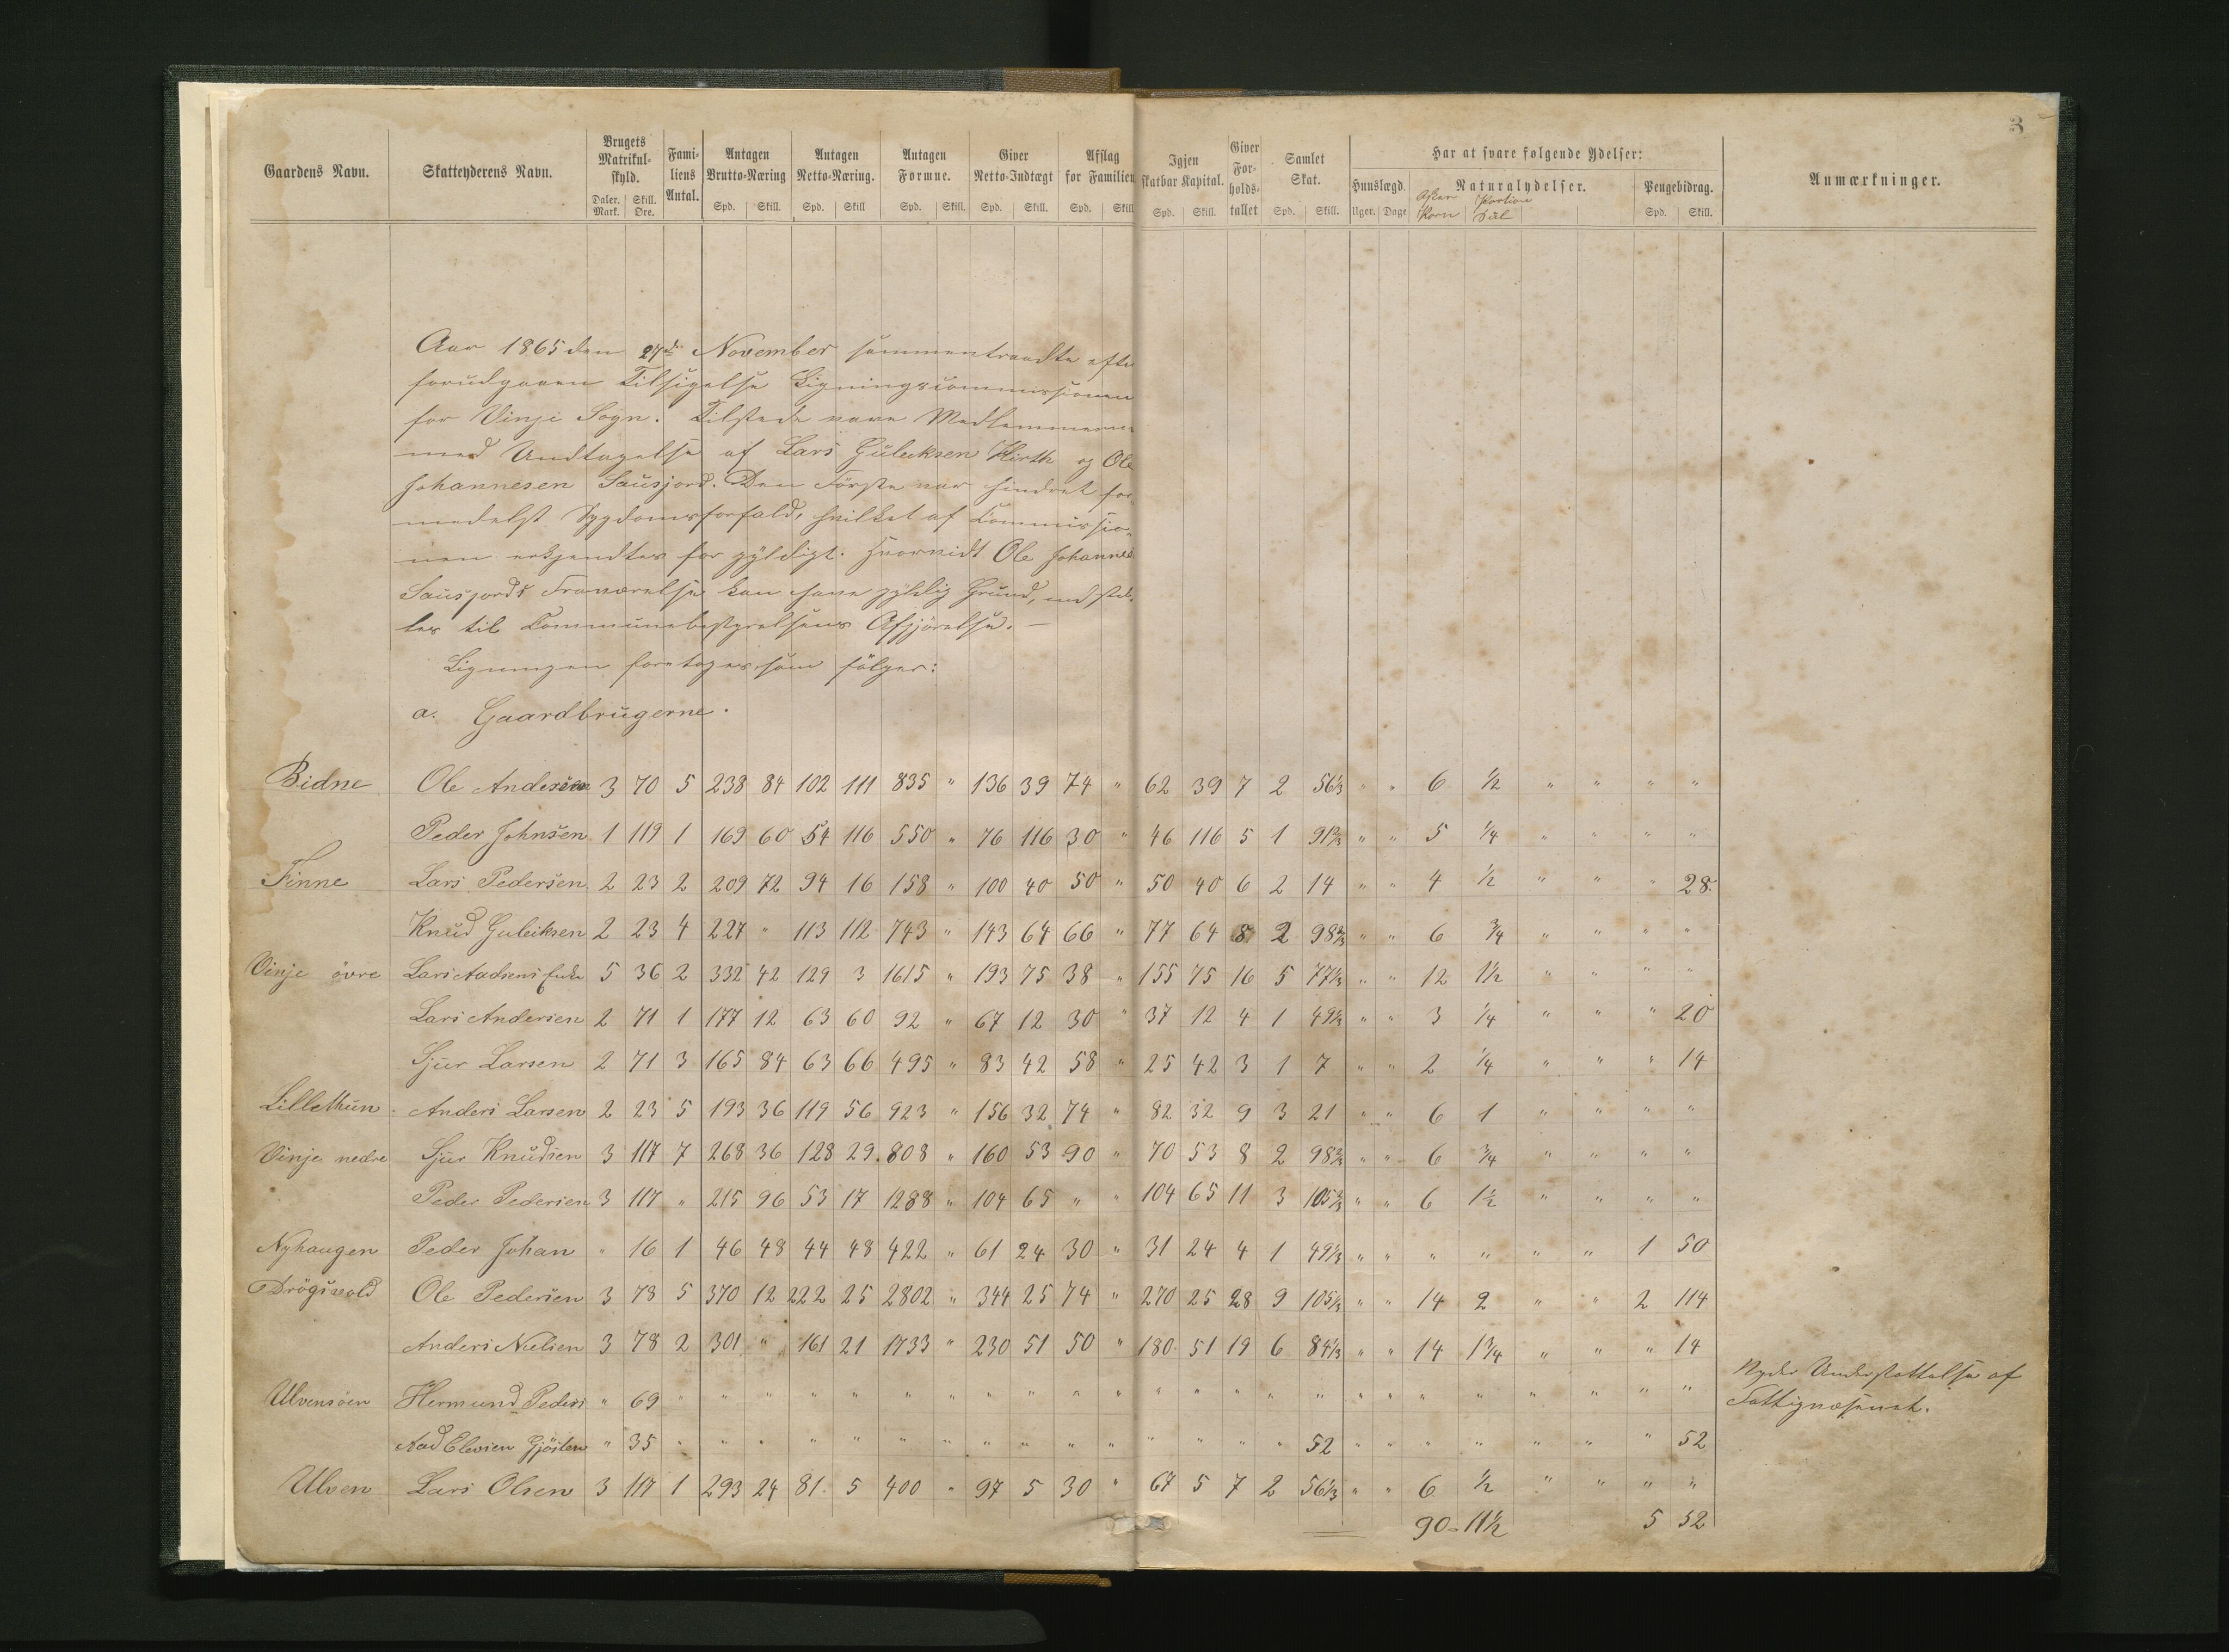 3
Gaardens Navn. Skatteyderens Navn. Brugets Matrikulskyld. Familiens Antal. Antagen Brutto-Næring Antagen Netto-Næring. Antagen Formue. Giver Netto-Indtægt Afslag for Familien Igjen skatbar Kapital. Giver Forholdstallet Samlet Skat. Har at svare følgende Ydelser: Anmærkninger.
Huuslægd. Naturalydelser. Pengebidrag.
Daler. Mark. Skill. Ore. Spd. Skill. Spd. Skill Spd. Skill. Spd. Skill. Spd. Skill Spd. Skill. Spd. Skill. Uger. Dage Korn Spd. Skill.
Aar 1865 den 27de November sammentraadte efter
forudgaaen Tilsigelse Ligningscommissionen
for Vinje Sogn. Tilstede vare Medlemmerne
med Undtagelse af Lars Guleeksen Hirth og Ole
Johannesen Sausjord. Den Første var hindret for
medelst Sygdomsforfald, hvilket af Commissio-
nen erkjendtes for gyldigt. Hvorvidt Ole Johannes
Sausjords Fraværelse kan have gyldig Grund, indstil-
les til Communebestyrelsens Afgjørelse. —
Ligningen foretoges som følger:
a. Gaardbrugerne.
Bidne Ole Andersen 3 70 5 238 84 102 111 835 " 136 39 74 " 62 39 7 2 56⅓ " " 6 ½ " " " "
Peder Johnsen 1 119 1 169 60 54 116 550 " 76 116 30 " 46 116 5 1 91⅔ " " 5 ¼ " " " "
Finne Lars Pedersen 2 23 2 209 72 94 16 158 " 100 40 50 " 50 40 6 2 14 " " 4 ½ " " " 28
Knud Guleiksen 2 23 4 227 " 113 112 743 " 143 64 66 " 77 64 8 2 98⅔ " " 6 ¾ " " " "
Vinje övre Lars Aadsens Enke 5 36 2 332 42 129 3 1615 " 193 75 38 " 155 75 16 5 77⅓ " " 12 1½ " " " "
Lars Andersen 2 71 1 177 12 63 60 92 " 67 12 30 " 37 12 4 1 49⅓ " " 3 ¼ " " " 20
Sjur Larsen 2 71 3 165 84 63 66 495 " 83 42 58 " 25 42 3 1 7 " " 2 ¼ " " " 14
Lillethun Anders Larsen 2 23 5 193 36 119 56 923 " 156 32 74 " 82 32 9 3 21 " " 6 1 " " " "
Vinje nedre Sjur Knudsen 3 117 7 268 36 128 29 808 " 160 53 90 " 70 53 8 2 98⅔ " " 6 ¾ " " " "
Peder Pedersen 3 117 " 215 96 53 17 1288 " 104 65 " " 104 65 11 3 105⅔ " " 6 1½ " " " "
Nyhaugen Peder Johan " 16 1 46 48 44 48 422 " 61 24 30 " 31 24 4 1 49⅓ " " " " " " 1 50
Drögsvold Ole Pedersen 3 78 5 370 12 222 25 2802 " 344 25 74 " 270 25 28 9 105⅓ " " 14 2 " " 2 114
Anders Nielsen 3 78 2 301 " 161 21 1733 " 230 51 50 " 180 51 19 6 84⅓ " " 14 1¾ " " " 14
Ulvensöen Hermund Peders " 69 " " " " " " " " " " " " " " " " " " " " " " " " Nyder Understøttelse af
Fattigvæsenet.
Aad Elevsen Gjösten " 35 " " " " " " " " " " " " " " " 52 " " " " " " " 52
Ulven Lars Olsen 3 117 1 293 24 81 5 400 " 97 5 30 " 67 5 7 2 56⅓ " " 6 ½ " " " "
90 - 11½ 5 52